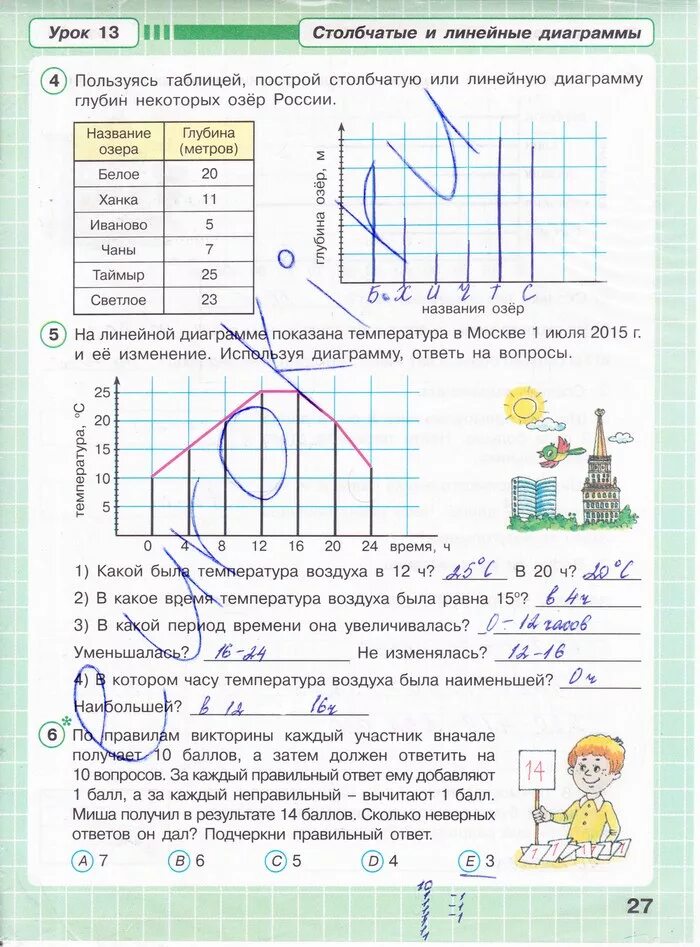 Урок 13
Столбчатые и линейные диаграммы
4 Пользуясь таблицей, построй столбчатую или линейную диаграмму
глубин некоторых озёр России.
Название озера Глубина (метров)
Белое 20
Ханка 11
Иваново 5
Чаны 7
Таймыр 25
Светлое 23
глубина озёр, м
Б. Х И Ч Т С
названия озёр
5 На линейной диаграмме показана температура в Москве 1 июля 2015 г.
и её изменение. Используя диаграмму, ответь на вопросы.
температура, °С
25
20
15
10
5
0 4 8 12 16 20 24 время, ч
1) Какой была температура воздуха в 12 ч? 25°С В 20 ч? 20°С
2) В какое время температура воздуха была равна 15°? в 4ч
3) В какой период времени она увеличивалась? 0-12 часов
Уменьшалась? 16-24 Не изменялась? 12-16
4) В котором часу температура воздуха была наименьшей? 0ч
Наибольшей? в 12 16ч
6* По правилам викторины каждый участник вначале
получает 10 баллов, а затем должен ответить на
10 вопросов. За каждый правильный ответ ему добавляют
1 балл, а за каждый неправильный – вычитают 1 балл.
Миша получил в результате 14 баллов. Сколько неверных
ответов он дал? Подчеркни правильный ответ.
14
1 1 1 1
A 7 B 6 C 5 D 4 E 3
10
-1
-1
-1
27